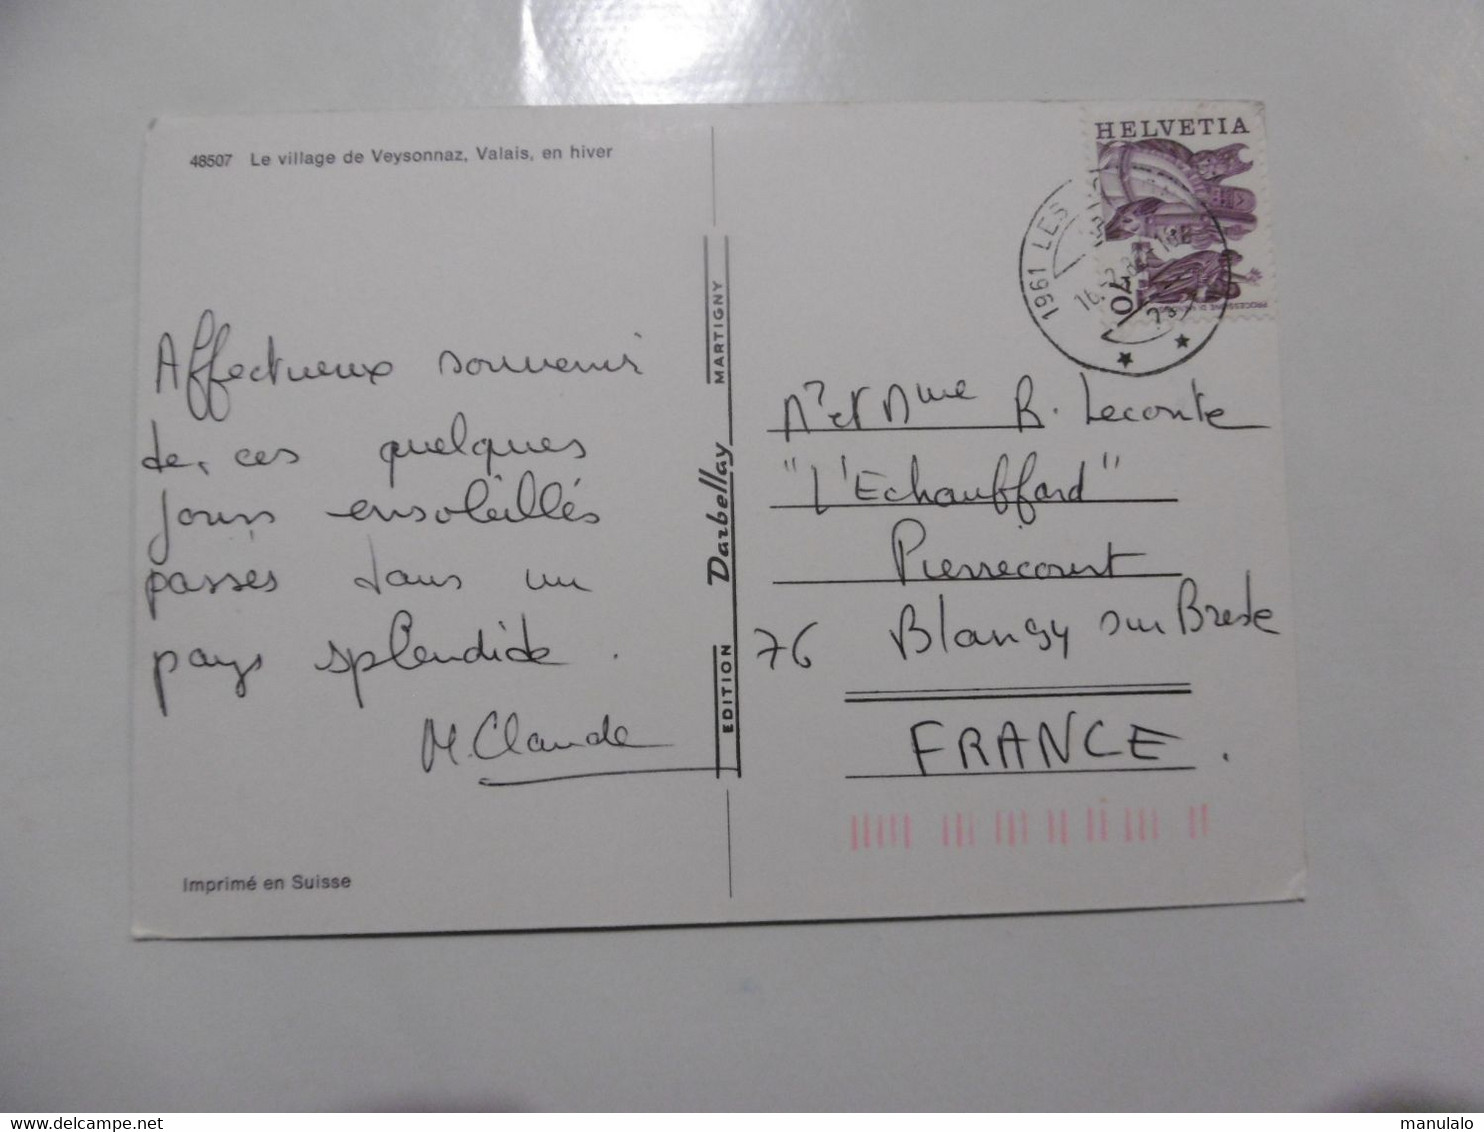 48507 Le village de Veysonnaz, Valais, en hiver
HELVETIA
70
1961 LES
Affectueux souvenir
de ces quelques
jours ensoleillés
passés dans un
pays splendide.
M. Claude
Imprimé en Suisse
EDITION Darbellay MARTIGNY
Mr et Mme R. Leconte
"L'Echauffard"
Pierrecourt
76 Blangy sur Bresle
FRANCE.
www.delcampe.net
manulalo